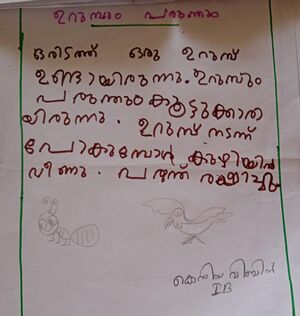 ഉറുമ്പും പരുന്തും
ഒരിടത്ത് ഒരു ഉറുമ്പ്
ഉണ്ടായിരുന്നു. ഉറുമ്പും
പരുന്തും കൂട്ടുക്കാരാ
യിരുന്നു. ഉറുമ്പ് നടന്ന്
പോകുമ്പോൾ കുഴിയിൽ
വീണു. പരുന്ത് രക്ഷിച്ചു.
വിബിൻ
I B